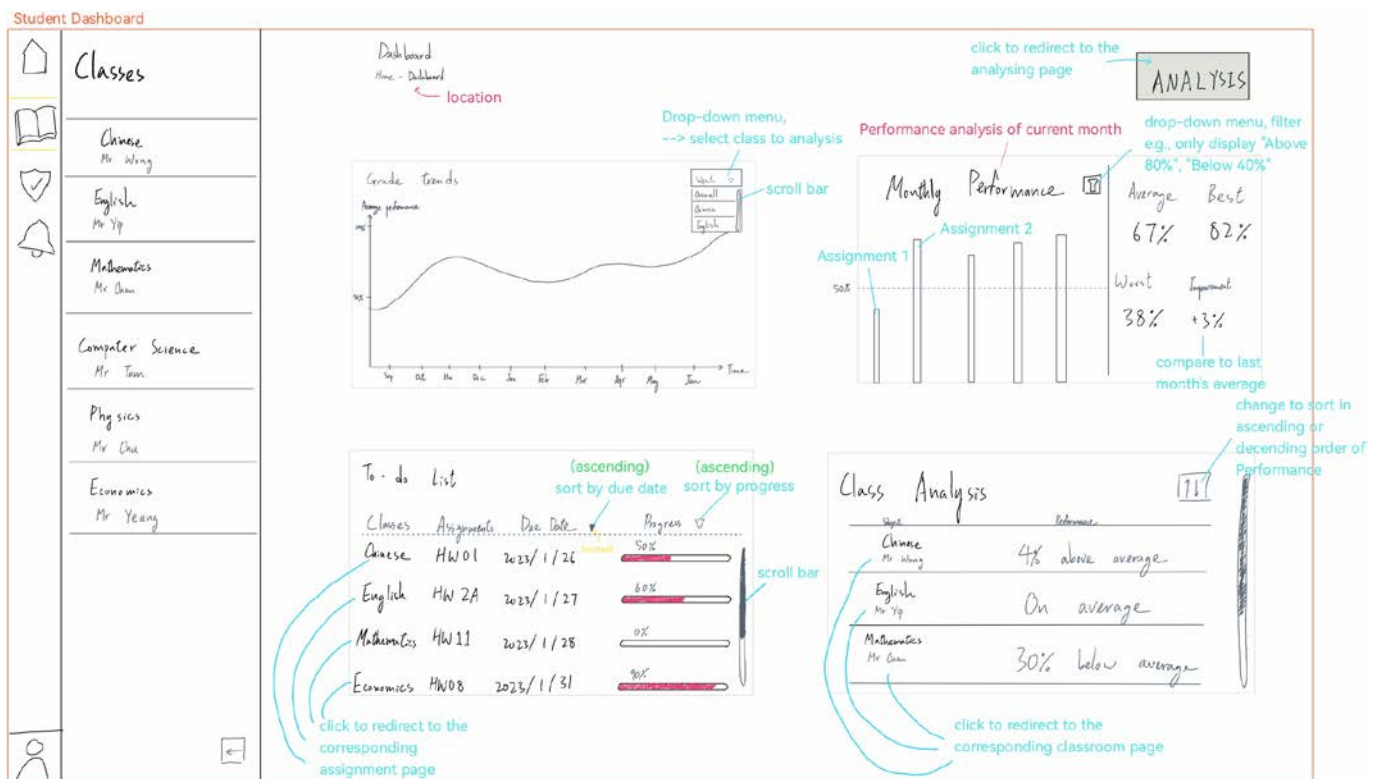 Student Dashboard
Classes
Chinese
Mr Wong
English
Mr Yip
Mathematics
Mr Chan
Computer Science
Mr Tam
Physics
Mr Chu
Economics
Mr Yeung
Dashboard
Home - Dashboard
location
click to redirect to the
analysing page
ANALYSIS
Drop-down menu,
--> select class to analysis
scroll bar
Grade trends
Average performance
Overall
Chinese
English
50%
Sep Oct Nov Dec Jan Feb Mar Apr May Jun
Time
Performance analysis of current month
drop-down menu, filter
e.g., only display "Above
80%", "Below 40%"
Monthly Performance
Assignment 1
Assignment 2
50%
Average Best
67% 82%
Worst
38% +3%
compare to last
month's average
To-do List
(ascending)
sort by due date
(ascending)
sort by progress
Classes Assignments Due Date Progress
Chinese HW01 2023/1/26 50%
English HW 2A 2023/1/27 60%
Mathematics HW11 2023/1/28 0%
Economics HW08 2023/1/31 90%
scroll bar
click to redirect to the
corresponding
assignment page
change to sort in
ascending or
decending order of
Performance
Class Analysis
Performance
Chinese
Mr Wong
4% above average
English
Mr Yip
On average
Mathematics
Mr Chan
30% below average
click to redirect to the
corresponding classroom page